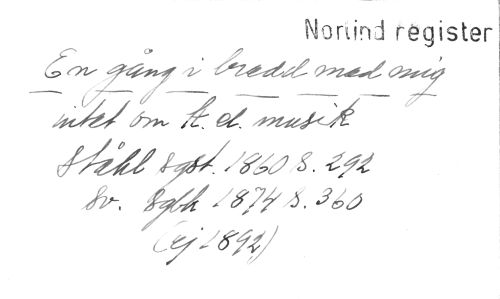 Norlind register
En gång i bredd med mig
intet om t. el. musik
Ståhl sgst. 1860 s. 292
Sv. sgbk 1874 s. 360
(ej 1892)